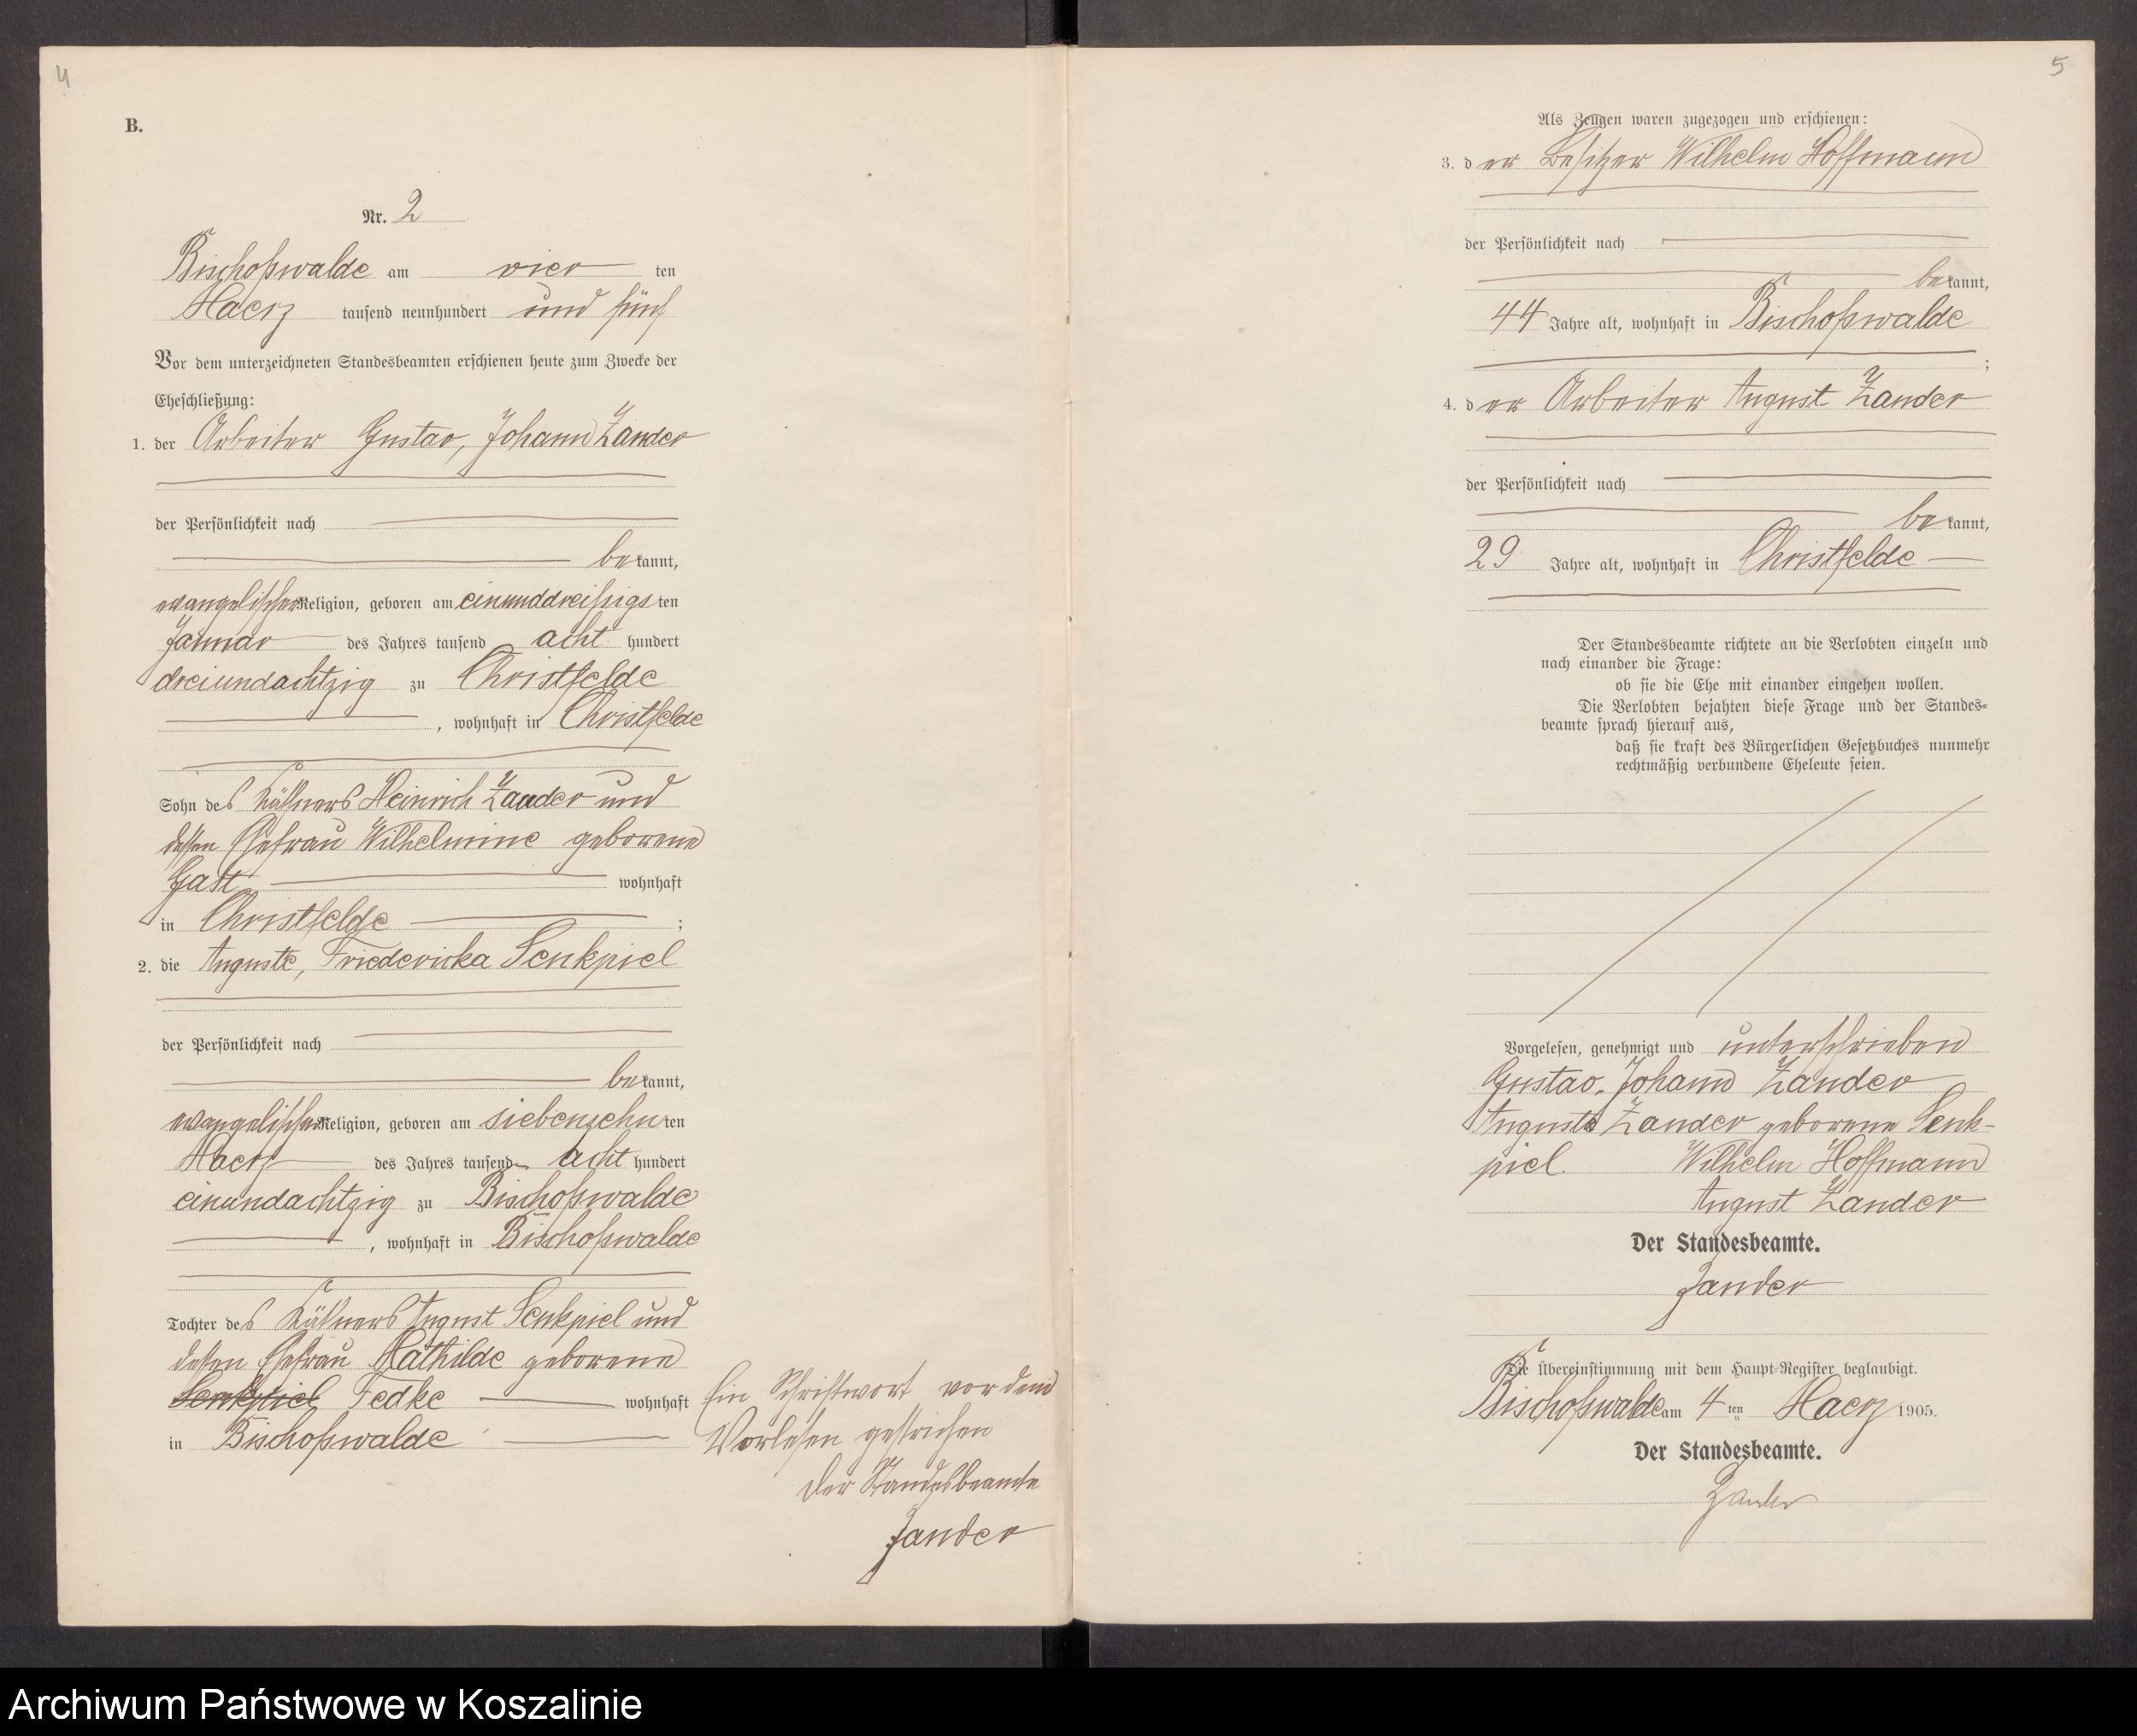 4
B.
Nr. 2
Bischofswalde am vier ten
Maerz tausend neunhundert und fünf
Vor dem unterzeichneten Standesbeamten erschienen heute zum Zwecke der
Eheschließung:
1. der Arbeiter Gustav, Johann Zander
der Persönlichkeit nach
be kannt,
evangelischer Religion, geboren am einunddreißigs ten
Januar des Jahres tausend acht hundert
dreiundachtzig zu Christfelde
, wohnhaft in Christfelde
Sohn des Käthners Heinrich Zander und
dessen Ehefrau Wilhelmine geborene
Gast wohnhaft
in Christfelde ;
2. die Auguste, Friedericka Senkpiel
der Persönlichkeit nach
be kannt,
evangelischer Religion, geboren am siebenzehn ten
Maerz des Jahres tausend acht hundert
einundachtzig zu Bischofswalde
, wohnhaft in Bischofswalde
Tochter des Käthners August Senkpiel und
dessen Ehefrau Mathilde geborene
Senkpiel Fedke wohnhaft
in Bischofswalde
Ein Schriftwort vor dem
Vorlesen gestrichen
Der Standesbeamte
Zander
5
Als Zeugen waren zugezogen und erschienen:
3. d er Besitzer Wilhelm Hoffmann
der Persönlichkeit nach
be kannt,
44 Jahre alt, wohnhaft in Bischofswalde
;
4. d er Arbeiter August Zander
der Persönlichkeit nach
be kannt,
29 Jahre alt, wohnhaft in Christfelde
Der Standesbeamte richtete an die Verlobten einzeln und
nach einander die Frage:
ob sie die Ehe mit einander eingehen wollen.
Die Verlobten bejahten diese Frage und der Standes-
beamte sprach hierauf aus,
daß sie kraft des Bürgerlichen Gesetzbuches nunmehr
rechtmäßig verbundene Eheleute seien.
Vorgelesen, genehmigt und unterschrieben
Gustav, Johann Zander
Auguste Zander geborene Senk-
piel. Wilhelm Hoffmann
August Zander
Der Standesbeamte.
Zander
Die Übereinstimmung mit dem Haupt-Register beglaubigt.
Bischofswalde am 4 ten Maerz 1905.
Der Standesbeamte.
Zander
Archiwum Państwowe w Koszalinie